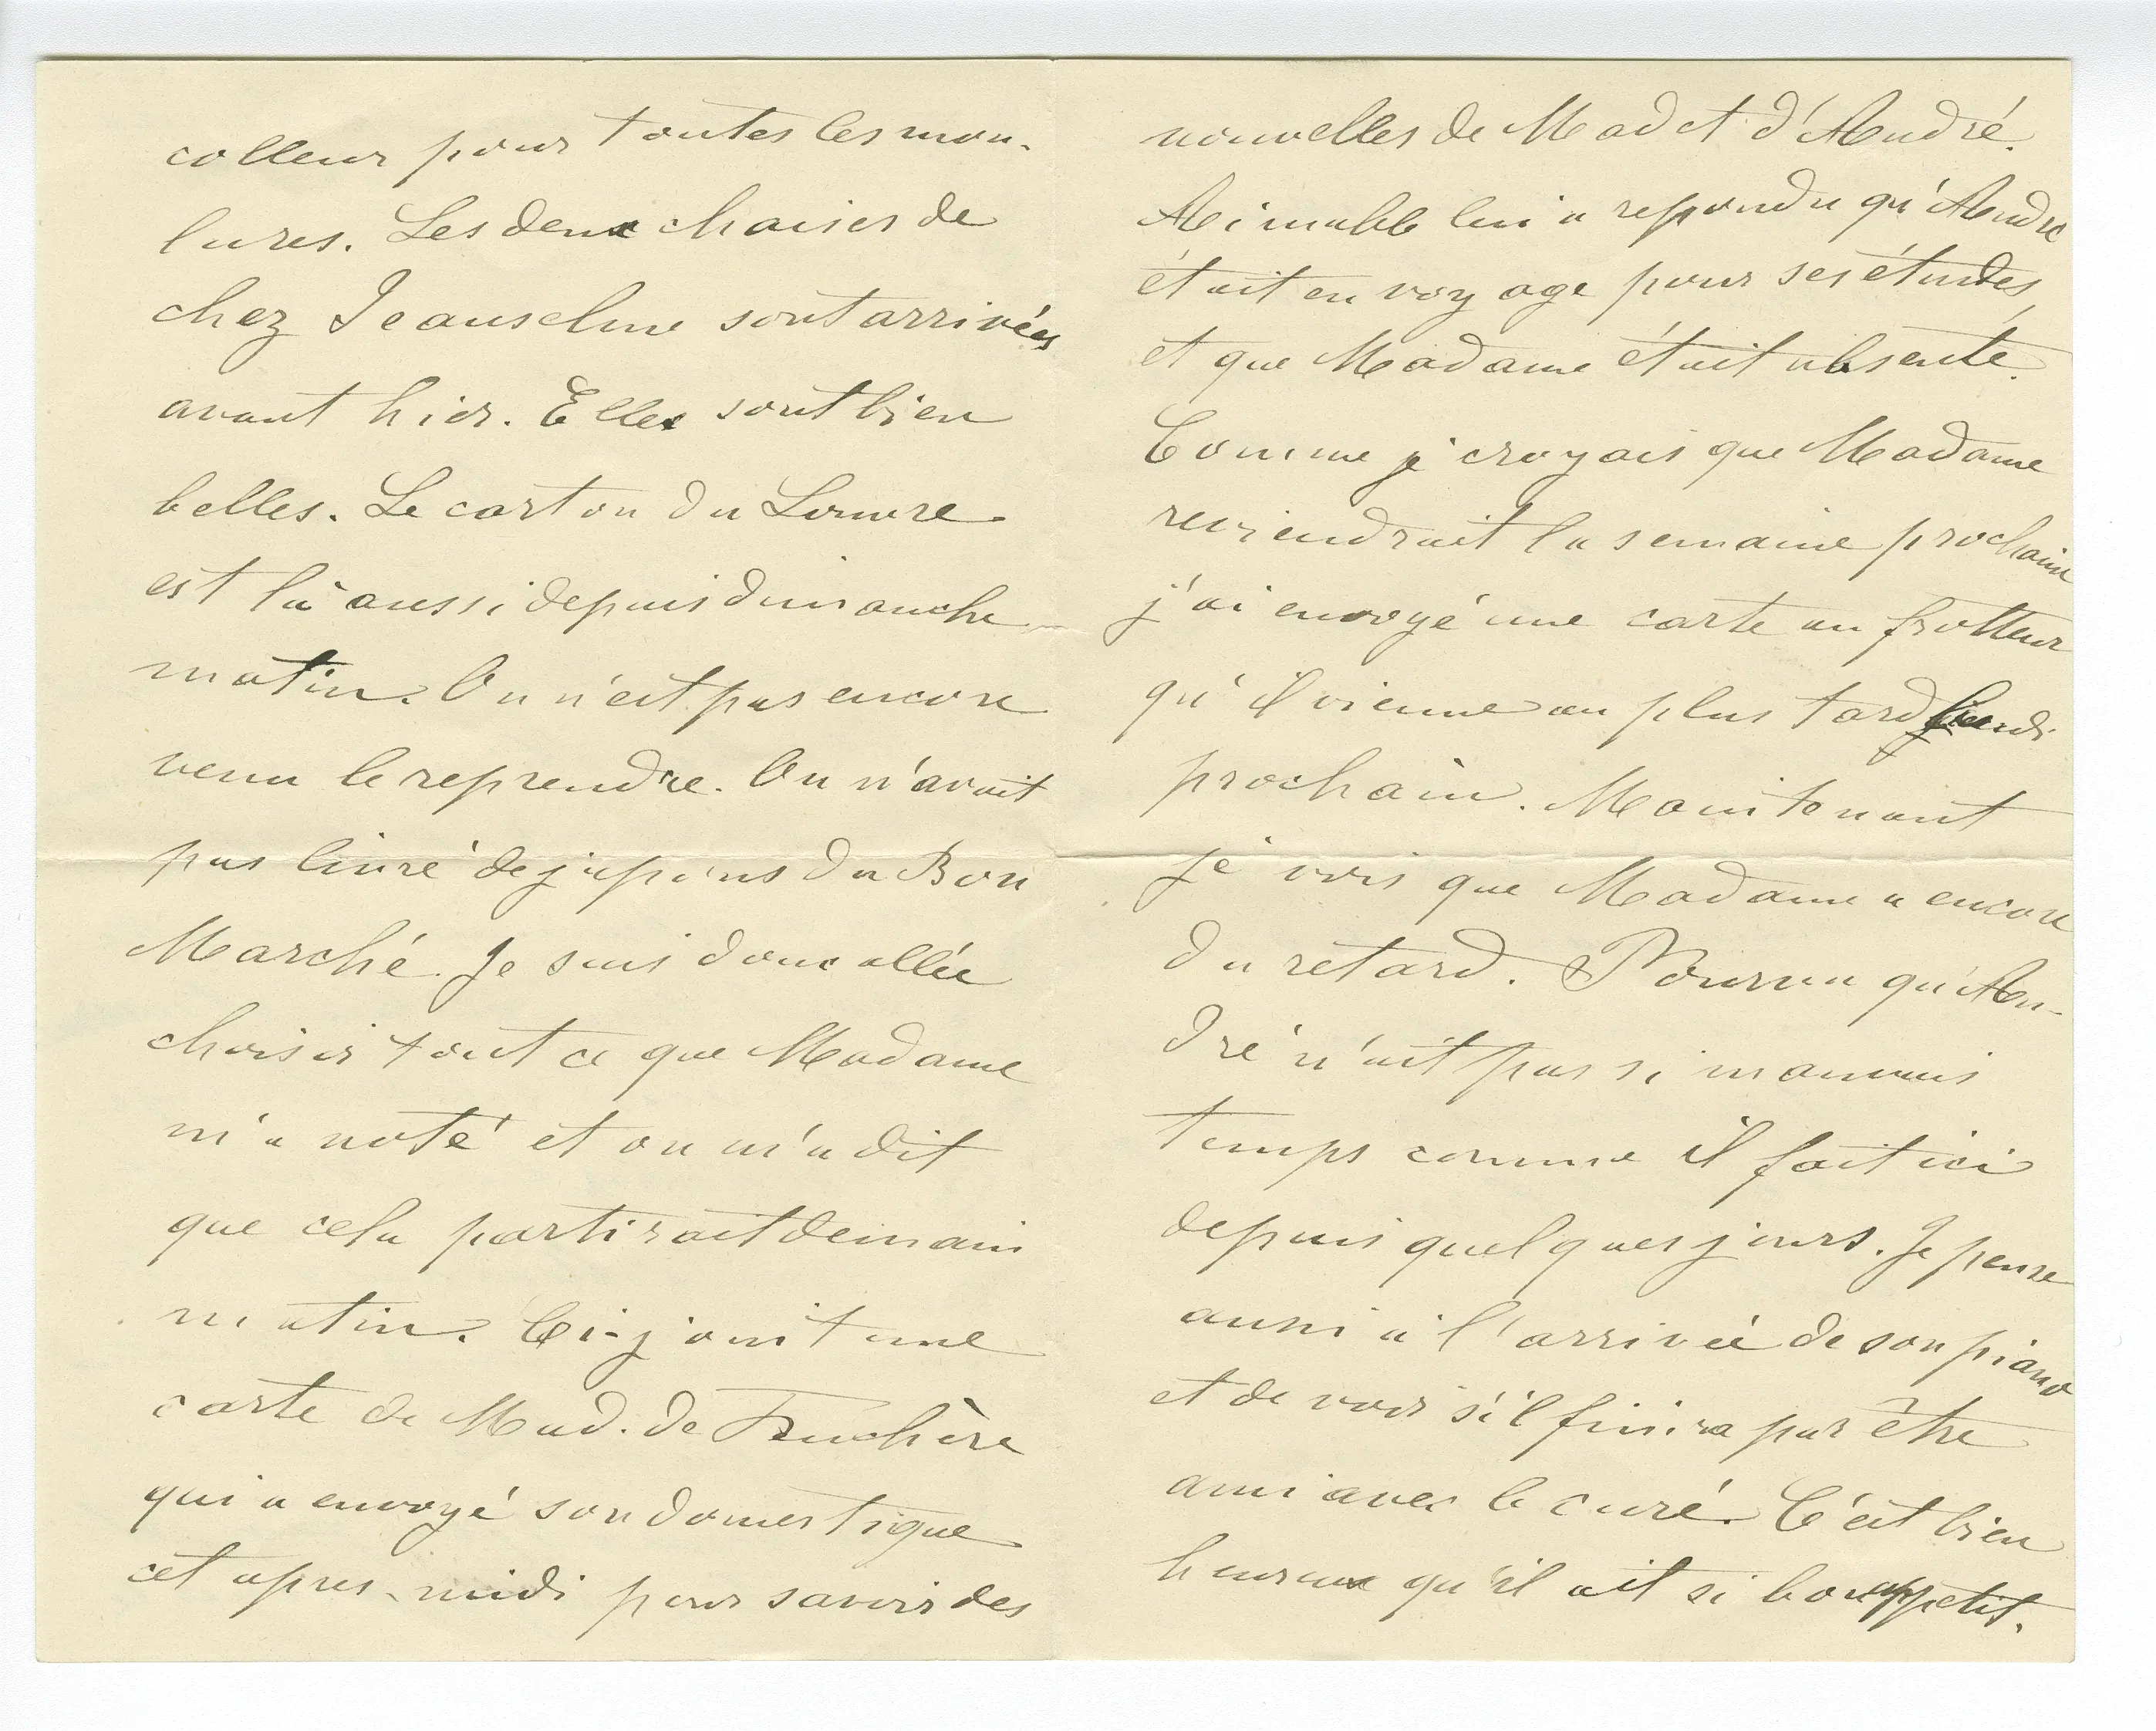 colleur pour toutes les mou-
lures. Les deux chaises de
chez Jeanselme sont arrivées
avant hier. Elles sont bien
belles. Le carton du Louvre
est là aussi depuis dimanche
matin. On n'est pas encore
venu le reprendre. On n'avait
pas livré de jupons du Bon
Marché. Je suis donc allée
choisir tout ce que Madame
m'a noté et on m'a dit
que cela partirait demain
matin. Ci-joint une
carte de Mad. de
qui a envoyé son domestique
cet apres-midi pour savoir des
nouvelles de Mad et d'André.
Aimable lui a repondu qu'André
était en voyage pour ses études,
et que Madame était absente.
Comme je croyais que Madame
reviendrait la semaine prochaine
j'ai envoyé une carte au frotteur
qu'il vienne au plus tard
prochain. Maintenant
je vois que Madame a encore
du retard. Pourvu qu'An-
dré n'ait pas si mauvais
temps comme il fait ici
depuis quelques jours. Je pense
aussi à l'arrivée de son piano
et de voir s'il finira par être
ami avec le curé. C'est bien
heureux qu'il ait si bon appetit.